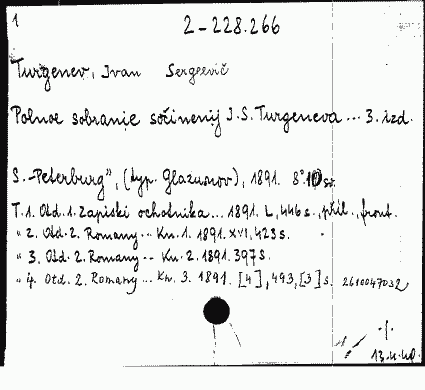 1
2-228.266
Turgenev, Ivan Sergeevič
Polnoe sobranie sočinenij I.S. Turgeneva ... 3. izd.
S.-Peterburg", (typ. Glazunov), 1891. 8° 10 sv.
T. 1. Otd. 1. Zapiski ochotnika... 1891. L, 446 s., přil., front.
" 2. Otd. 2. Romany... Kn. 1. 1891. XVI, 423 s.
" 3. Otd. 2. Romany... Kn. 2. 1891. 397 s.
" 4. Otd. 2. Romany... Kn. 3. 1891. [4], 493, [3] s. 2610047032